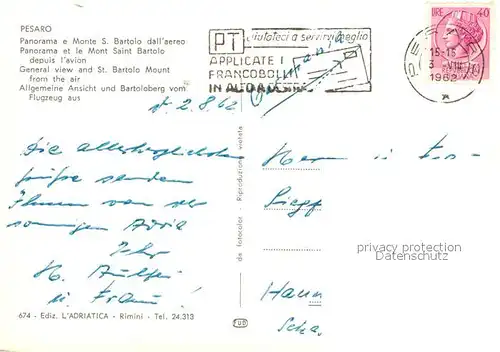 PESARO
Panorama e Monte S. Bartolo dall'aereo
Panorama et le Mont Saint Bartolo
depuis l'avion
General view and St. Bartolo Mount
from the air
Allgemeine Ansicht und Bartoloberg vom
Flugzeug aus
PT
aiutateci a servirvi meglio
APPLICATE I
FRANCOBOLLI
IN ALTO A
LIRE 40
15-16
3 VIII
1962
2. 8. 62
Die allerherzlichsten
Grüße senden
Ihnen von der
sonnigen Adria
Ihr
H.
u. Frau!
Herrn u.
privacy protection
Datenschutz
da fotocolor - Riproduzione vietata
674 - Ediz. L'ADRIATICA - Rimini - Tel. 24.313